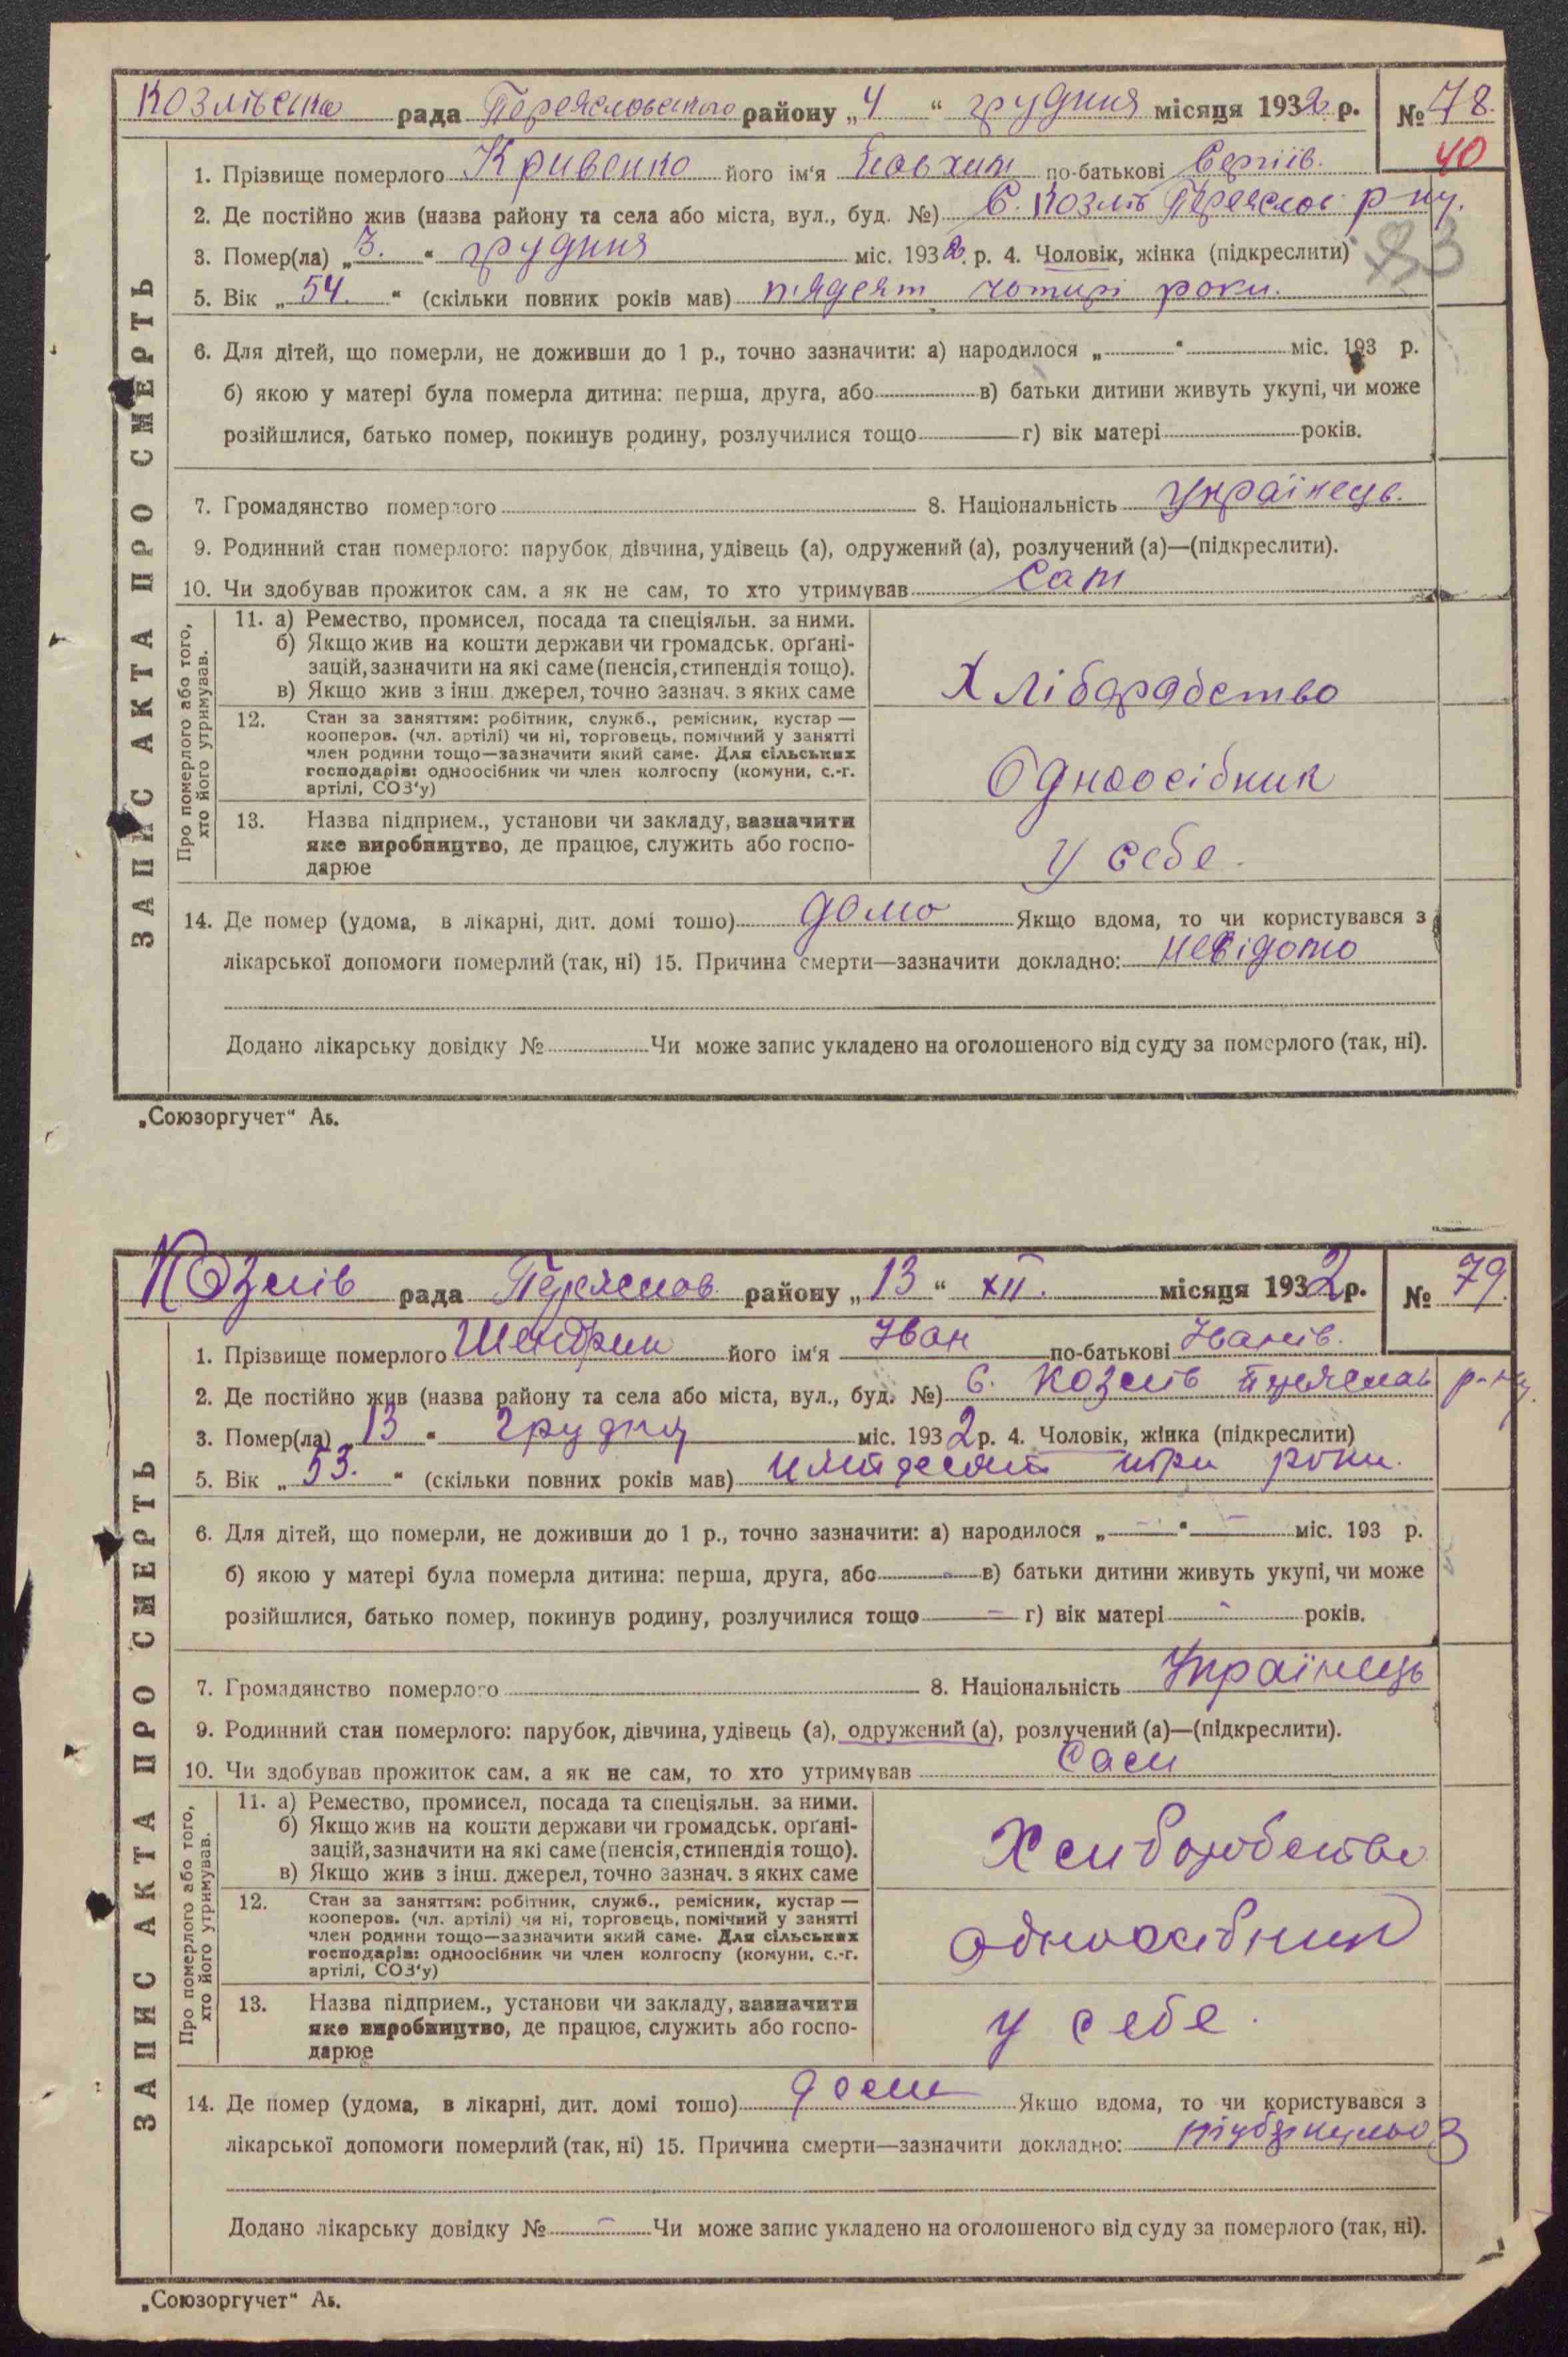 Козлівська рада Переяславського району „4“ грудня місяця 1932 р. № 78.
40
1. Прізвище померлого Кривенко його ім'я по-батькові Сергіїв.
2. Де постійно жив (назва району та села або міста, вул., буд. №) С. Козлів Переяслов р-ну.
3. Помер(ла) „3.“ грудня міс. 1932. р. 4. Чоловік, жінка (підкреслити)
5. Вік „54.“ (скільки повних років мав) пядесят чотирі роки.
6. Для дітей, що померли, не доживши до 1 р., точно зазначити: а) народилося „ “ міс. 193 р.
б) якою у матері була померла дитина: перша, друга, або в) батьки дитини живуть укупі, чи може
розійшлися, батько помер, покинув родину, розлучилися тощо г) вік матері років.
7. Громадянство померлого 8. Національність Українець.
9. Родинний стан померлого: парубок, дівчина, удівець (а), одружений (а), розлучений (а)—(підкреслити).
10. Чи здобував прожиток сам, а як не сам, то хто утримував сам
ЗАПИС АКТА ПРО СМЕРТЬ
Про померлого або того,
хто його утримував.
11. а) Ремество, промисел, посада та спеціяльн. за ними.
б) Якщо жив на кошти держави чи громадськ. орґані-
зацій, зазначити на які саме (пенсія, стипендія тощо).
в) Якщо жив з інш. джерел, точно зазнач. з яких саме
Хліборобство
12. Стан за заняттям: робітник, служб., ремісник, кустар —
кооперов. (чл. артілі) чи ні, торговець, помічний у занятті
член родини тощо—зазначити який саме. Для сільських
господарів: одноосібник чи член колгоспу (комуни, с.-г.
артілі, СОЗ'у)
Одноосібник
13. Назва підприєм., установи чи закладу, зазначити
яке виробництво, де працює, служить або госпо-
дарює
У себе.
14. Де помер (удома, в лікарні, дит. домі тошо) дома Якщо вдома, то чи користувався з
лікарської допомоги померлий (так, ні) 15. Причина смерти—зазначити докладно: невідомо
Додано лікарську довідку № Чи може запис укладено на оголошеного від суду за померлого (так, ні).
„Союзоргучет“ Аб.
Козлів рада Переяслов. району „13“ XII. місяця 1932 р. № 79.
1. Прізвище померлого його ім'я Іван по-батькові Іванів.
2. Де постійно жив (назва району та села або міста, вул., буд. №) С. Козлів Переяслав р-ну.
3. Помер(ла) „13“ грудня міс. 1932 р. 4. Чоловік, жінка (підкреслити)
5. Вік „53.“ (скільки повних років мав) пятдесят три роки.
6. Для дітей, що померли, не доживши до 1 р., точно зазначити: а) народилося „ — “ — міс. 193 р.
б) якою у матері була померла дитина: перша, друга, або - в) батьки дитини живуть укупі, чи може
розійшлися, батько помер, покинув родину, розлучилися тощо - г) вік матері - років.
7. Громадянство померлого 8. Національність Українець
9. Родинний стан померлого: парубок, дівчина, удівець (а), одружений (а), розлучений (а)—(підкреслити).
10. Чи здобував прожиток сам, а як не сам, то хто утримував Сам
ЗАПИС АКТА ПРО СМЕРТЬ
Про померлого або того,
хто його утримував.
11. а) Ремество, промисел, посада та спеціяльн. за ними.
б) Якщо жив на кошти держави чи громадськ. орґані-
зацій, зазначити на які саме (пенсія, стипендія тощо).
в) Якщо жив з інш. джерел, точно зазнач. з яких саме
Хлиборобство
12. Стан за заняттям: робітник, служб., ремісник, кустар —
кооперов. (чл. артілі) чи ні, торговець, помічний у занятті
член родини тощо—зазначити який саме. Для сільських
господарів: одноосібник чи член колгоспу (комуни, с.-г.
артілі, СОЗ'у)
одноосібник
13. Назва підприєм., установи чи закладу, зазначити
яке виробництво, де працює, служить або госпо-
дарює
у себе.
14. Де помер (удома, в лікарні, дит. домі тошо) дома Якщо вдома, то чи користувався з
лікарської допомоги померлий (так, ні) 15. Причина смерти—зазначити докладно:
Додано лікарську довідку № - Чи може запис укладено на оголошеного від суду за померлого (так, ні).
„Союзоргучет“ Аб.